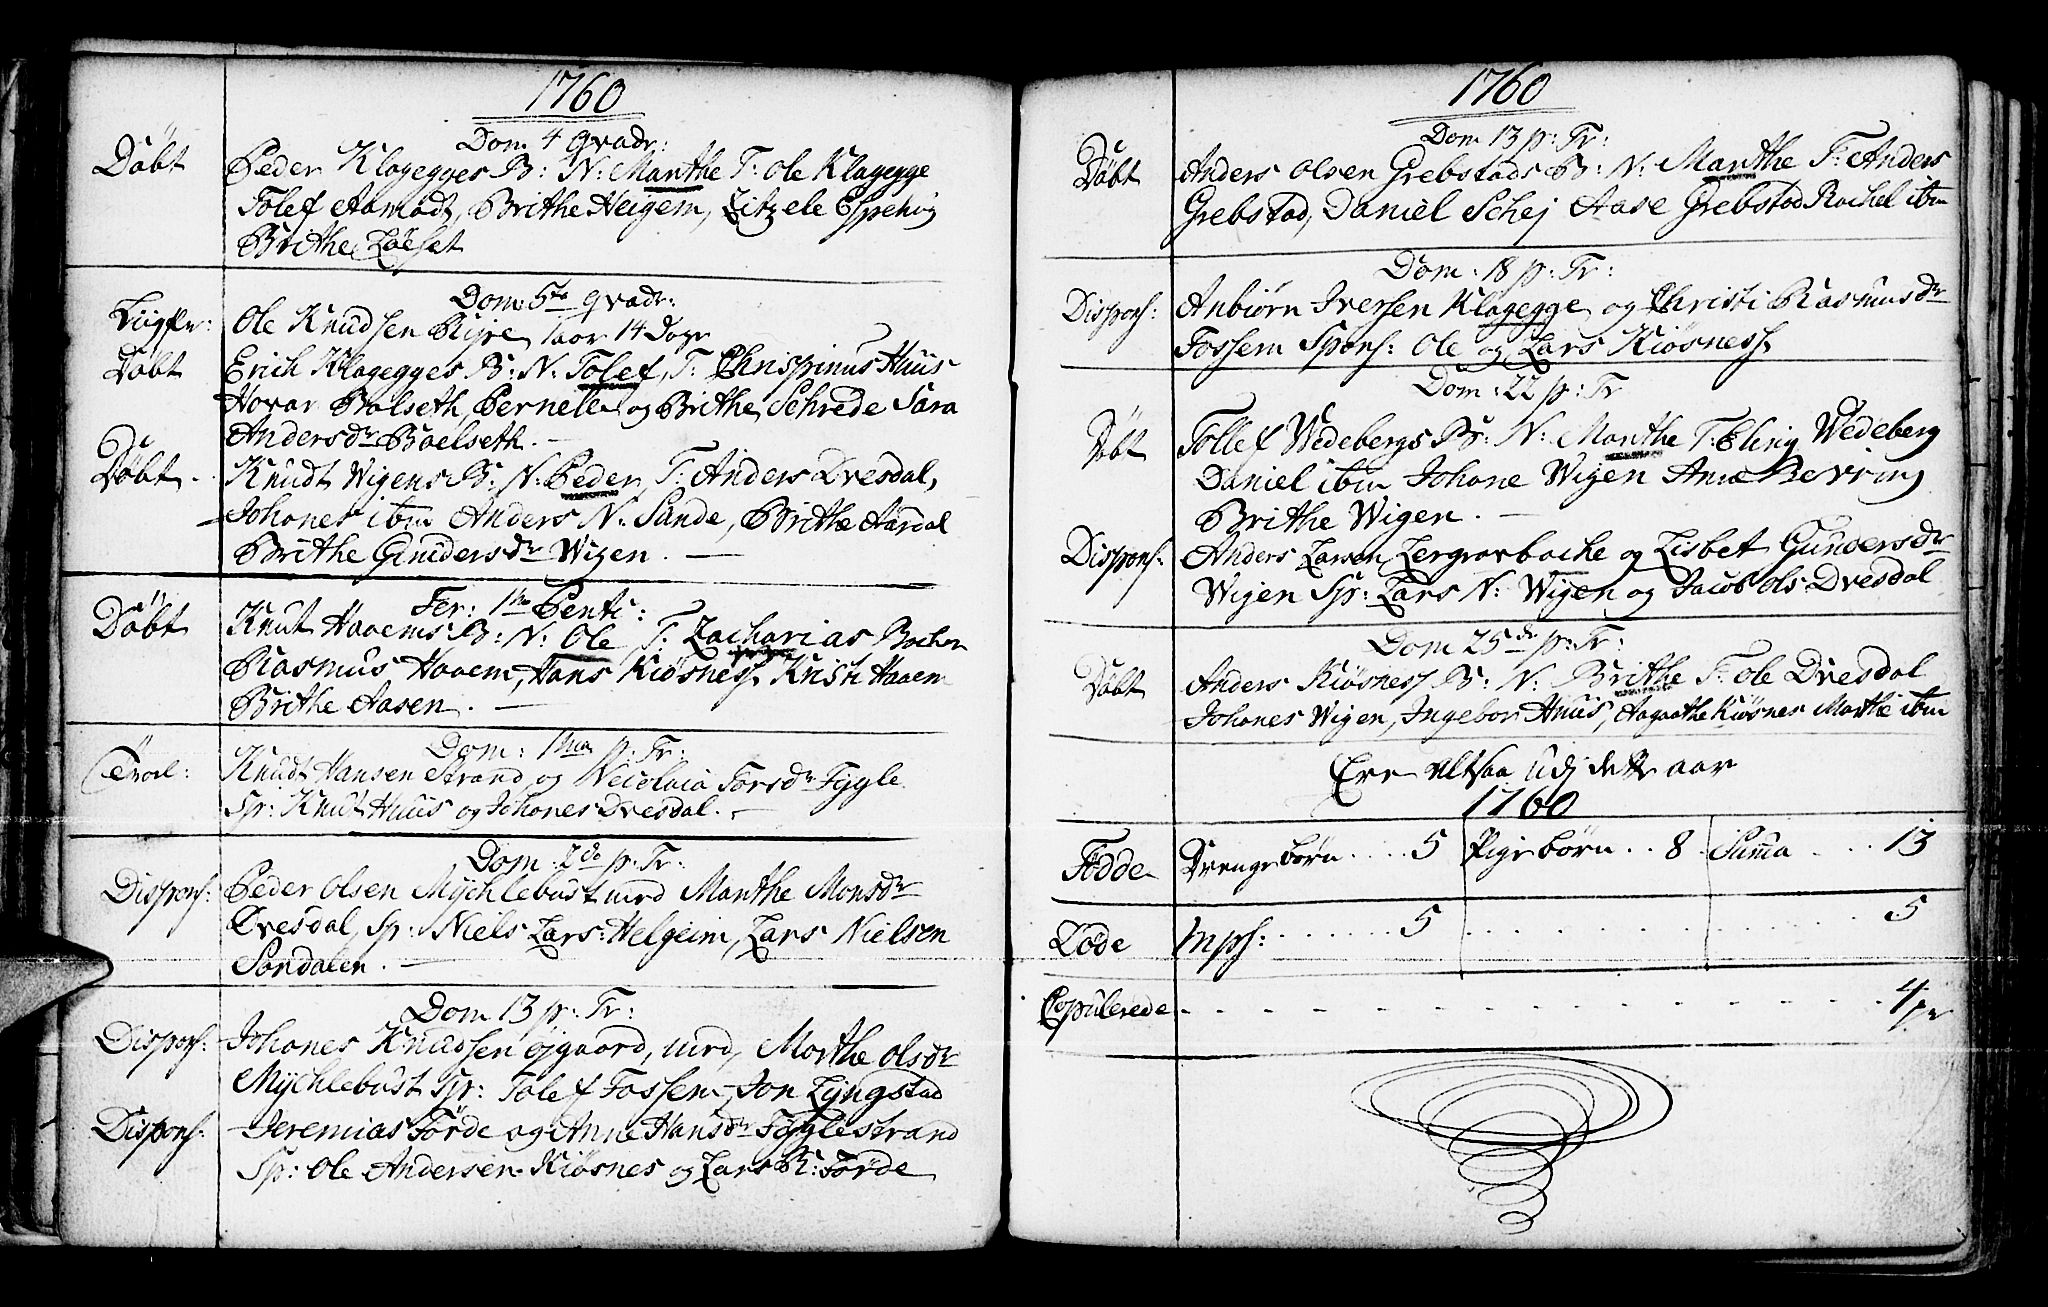 1760
Dom 4 qvadr:
Döbt Peder Klageggес B: N: Marthe T: Ole Klagegge
Tolef Aamodt, Brithe Heigem, Litzele Espehöj
Brithe Löeset
Dom: 5ta qvadr:
Liigpr: Ole Knudsen Ripe 14 Dage
Döbt Erich Klagegges B: N: Tolef, T: Chrispinus Huus
Hovar Bolseth, Pernelle og Brithe Schrede Sara
Andersdr Boelseth.
Döbt Knudt Wigens B: N: Peder, T: Anders Dvesdal,
Johanes ibm Anders N: Sande, Brithe Aardal
Brithe Gundersdr Wigen.
Fer: 1ma Pent:
Döbt Knut Haaems B: N: Ole T: Zacharias Bochen
Rasmus Haaem, Hans Kiösness Kristi Haaem
Brithe Aasen.
Dom: 1ma p: Tr:
Trol: Knudt Hansen Strand og Nicolaia Torsdr Fygle
Sp: Knut Huus og Johanes Dvesdal.
Dom: 2da p: Tr:
Dispons: Peder Olsen Mychlebust med Marthe Monsdr
Dvesdal, Sp: Niels Lars: Helgeim, Lars Nielsen
Søndalen.
Dom 13 p: Tr:
Dispons: Johanes Knudsen øjgaard, med, Marthe Olsdr
Mychlebust Sp: Tolef Fossem, Jon Lyngstad
Dispons: Jeremias Förde og Anne Hansdr Fyglestrand
Sp: Ole Andersen Kiösnes og Lars R: Förde
1760
Dom 13 p: Tr:
Döbt Anders Olsen Grebstads B: N: Marthe T: Anders
Grebstad, Daniel Schej Aase Grebstad Rachel ibm
Dom: 18 p: Tr:
Dispons: Anbiörn Iversen Klagegge og Christi Rasmusdr
Fossem Spons: Ole og Lars Kiösness
Dom: 22 p: Tr
Döbt Tollef Wedebergs B: N: Marthe T: Elling Wedeberg
Daniel ibm Johane Wigen Anne Bevring
Brithe Wigen.
Dispons: Anders Larsen Lergrovbacke og Lisbet Gundersdr
Wigen Sp: Lars N: Wigen og Jacob Ols Dvesdal
Dom 25de p: Tr:
Döbt Anders Kiösness B: N: Brithe T: Ole Dvesdal
Johanes Wigen, Ingebor Huus, Aagaathe Kiösnes Marthe ibm
Ere altsaa udj dette aar
1760
Födde Drengebörn .... 5 Pigebörn .. 8 Suma .... 13
Döde Mpss: ...... 5 ...... 5
Copulerede - - - - - - 4 pr